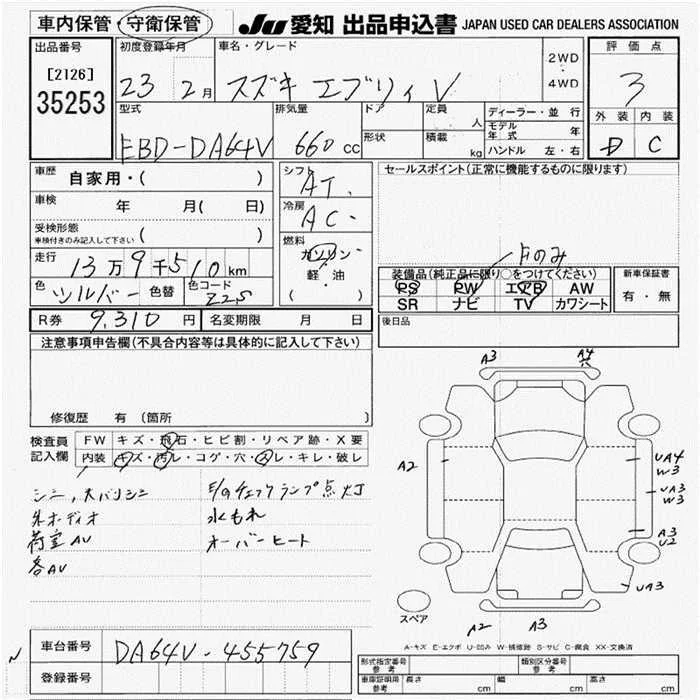 車内保管・守衛保管
JU 愛知 出品申込書 JAPAN USED CAR DEALERS ASSOCIATION
出品番号
[2126]
35253
初度登録年月
23 2月
車名・グレード
スズキ エブリィ V
2WD
・
4WD
評価点
3
外装 内装
D C
型式
EBD-DA64V
排気量
660 cc
ドア
形状
定員
人
積載
kg
ディーラー・並行
モデル年式 年
ハンドル 左・右
車歴
自家用・( )
車検
年 月( 日)
受検形態
車検付きのみ記入して下さい ( )
走行
13万9千510km
色
シルバー
色替
色コード
Z2S
シフト
AT.
冷房
AC-
燃料
ガソリン・
軽・油
( )
セールスポイント(正常に機能するものに限ります)
Fのみ
装備品(純正品に限り○をつけてください)
PS PW エアB AW
SR ナビ TV カワシート
新車保証書
有・無
後日品
R券 9,310円
名変期限 月 日
注意事項申告欄(不具合内容等は具体的に記入して下さい)
修復歴 有(箇所 )
検査員記入欄
FW キズ・飛石・ヒビ割・リペア跡・X要
内装 キズ・汚レ・コゲ・穴・スレ・キレ・破レ
外オーディオ
荷室AU
各AU
E/Gチェックランプ点灯
水もれ
オーバーヒート
A3
A4
A2
UA4
W3
UA3
W3
A3
U2
UA3
A2
A3
スペア
A-キズ E-エクボ U-凹み W-補修跡 S-サビ C-腐食 XX-交換済
車台番号 DA64V-455759
登録番号
N
形式指定番号 参考
類別区分番号 参考
車庫証明用 参考 長さ cm 幅 cm 高さ cm